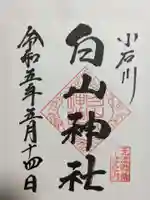 小石川
白山神社
令和五年五月十四日